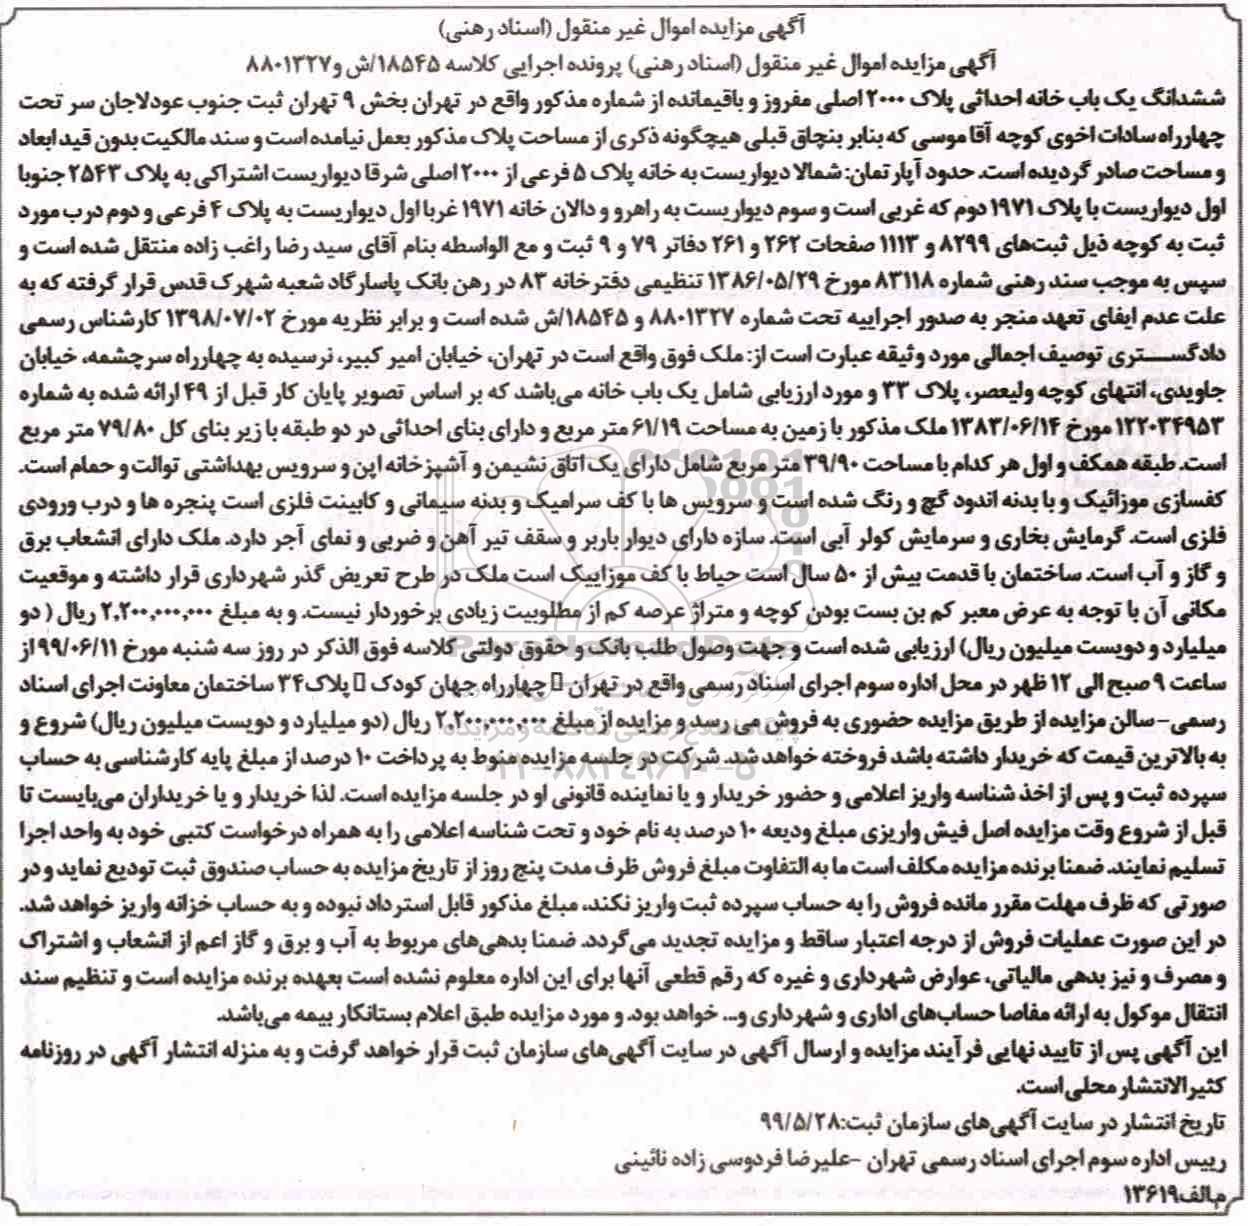 آگهی مزایده اموال غیر منقول (اسناد رهنی)
آگهی مزایده اموال غیر منقول (اسناد رهنی) پرونده اجرایی کلاسه ۱۸۵۴۵/ش و۸۸۰۱۳۲۷
ششدانگ یک باب خانه احداثی پلاک ۲۰۰۰ اصلی مفروز و باقیمانده از شماره مذکور واقع در تهران بخش ۹ تهران ثبت جنوب عودلاجان سر تحت
چهارراه سادات اخوی کوچه آقا موسی که بنابر بنچاق قبلی هیچگونه ذکری از مساحت پلاک مذکور بعمل نیامده است و سند مالکیت بدون قید ابعاد
و مساحت صادر گردیده است. حدود آپارتمان: شمالا دیواریست به خانه پلاک ۵ فرعی از ۲۰۰۰ اصلی شرقا دیواریست اشتراکی به پلاک ۲۵۴۳ جنوبا
اول دیواریست با پلاک ۱۹۷۱ دوم که غربی است و سوم دیواریست به راهرو و دالان خانه ۱۹۷۱ غربا اول دیواریست به پلاک ۴ فرعی و دوم درب مورد
ثبت به کوچه ذیل ثبت‌های ۸۲۹۹ و ۱۱۱۳ صفحات ۲۶۲ و ۲۶۱ دفاتر ۷۹ و ۹ ثبت و مع الواسطه بنام آقای سید رضا راغب زاده منتقل شده است و
سپس به موجب سند رهنی شماره ۸۳۱۱۸ مورخ ۱۳۸۶/۰۵/۲۹ تنظیمی دفترخانه ۸۳ در رهن بانک پاسارگاد شعبه شهرک قدس قرار گرفته که به
علت عدم ایفای تعهد منجر به صدور اجراییه تحت شماره ۸۸۰۱۳۲۷ و ۱۸۵۴۵/ش شده است و برابر نظریه مورخ ۱۳۹۸/۰۷/۰۲ کارشناس رسمی
دادگستری توصیف اجمالی مورد وثیقه عبارت است از: ملک فوق واقع است در تهران، خیابان امیر کبیر، نرسیده به چهارراه سرچشمه، خیابان
جاویدی، انتهای کوچه ولیعصر، پلاک ۳۳ و مورد ارزیابی شامل یک باب خانه می‌باشد که بر اساس تصویر پایان کار قبل از ۴۹ ارائه شده به شماره
۱۲۲۰۳۴۹۵۳ مورخ ۱۳۸۳/۰۶/۱۴ ملک مذکور با زمین به مساحت ۶۱/۱۹ متر مربع و دارای بنای احداثی در دو طبقه با زیر بنای کل ۷۹/۸۰ متر مربع
است. طبقه همکف و اول هر کدام با مساحت ۳۹/۹۰ متر مربع شامل دارای یک اتاق نشیمن و آشپزخانه اپن و سرویس بهداشتی توالت و حمام است.
کفسازی موزائیک و با بدنه اندود گچ و رنگ شده است و سرویس ها با کف سرامیک و بدنه سیمانی و کابینت فلزی است پنجره ها و درب ورودی
فلزی است. گرمایش بخاری و سرمایش کولر آبی است. سازه دارای دیوار باربر و سقف تیر آهن و ضربی و نمای آجر دارد. ملک دارای انشعاب برق
و گاز و آب است. ساختمان با قدمت بیش از ۵۰ سال است حیاط با کف موزاییک است ملک در طرح تعریض گذر شهرداری قرار داشته و موقعیت
مکانی آن با توجه به عرض معبر کم بن بست بودن کوچه و متراژ عرصه کم از مطلوبیت زیادی برخوردار نیست. و به مبلغ ۲,۲۰۰,۰۰۰,۰۰۰ ریال ( دو
میلیارد و دویست میلیون ریال) ارزیابی شده است و جهت وصول طلب بانک و حقوق دولتی کلاسه فوق الذکر در روز سه شنبه مورخ ۹۹/۰۶/۱۱ از
ساعت ۹ صبح الی ۱۲ ظهر در محل اداره سوم اجرای اسناد رسمی واقع در تهران چهارراه جهان کودک پلاک ۳۴ ساختمان معاونت اجرای اسناد
رسمی- سالن مزایده از طریق مزایده حضوری به فروش می رسد و مزایده از مبلغ ۲,۲۰۰,۰۰۰,۰۰۰ ریال (دو میلیارد و دویست میلیون ریال) شروع و
به بالاترین قیمت که خریدار داشته باشد فروخته خواهد شد. شرکت در جلسه مزایده منوط به پرداخت ۱۰ درصد از مبلغ پایه کارشناسی به حساب
سپرده ثبت و پس از اخذ شناسه واریز اعلامی و حضور خریدار و یا نماینده قانونی او در جلسه مزایده است. لذا خریدار و یا خریداران می‌بایست تا
قبل از شروع وقت مزایده اصل فیش واریزی مبلغ ودیعه ۱۰ درصد به نام خود و تحت شناسه اعلامی را به همراه درخواست کتبی خود به واحد اجرا
تسلیم نمایند. ضمنا برنده مزایده مکلف است ما به التفاوت مبلغ فروش ظرف مدت پنج روز از تاریخ مزایده به حساب صندوق ثبت تودیع نماید و در
صورتی که ظرف مهلت مقرر مانده فروش را به حساب سپرده ثبت واریز نکند، مبلغ مذکور قابل استرداد نبوده و به حساب خزانه واریز خواهد شد.
در این صورت عملیات فروش از درجه اعتبار ساقط و مزایده تجدید می‌گردد. ضمنا بدهی‌های مربوط به آب و برق و گاز اعم از انشعاب و اشتراک
و مصرف و نیز بدهی مالیاتی، عوارض شهرداری و غیره که رقم قطعی آنها برای این اداره معلوم نشده است بعهده برنده مزایده است و تنظیم سند
انتقال موکول به ارائه مفاصا حساب‌های اداری و شهرداری و... خواهد بود. و مورد مزایده طبق اعلام بستانکار بیمه می‌باشد.
این آگهی پس از تایید نهایی فرآیند مزایده و ارسال آگهی در سایت آگهی‌های سازمان ثبت قرار خواهد گرفت و به منزله انتشار آگهی در روزنامه
کثیرالانتشار محلی است.
تاریخ انتشار در سایت آگهی‌های سازمان ثبت:۹۹/۵/۲۸
رییس اداره سوم اجرای اسناد رسمی تهران -علیرضا فردوسی زاده نائینی
م‌الف۱۳۶۱۹